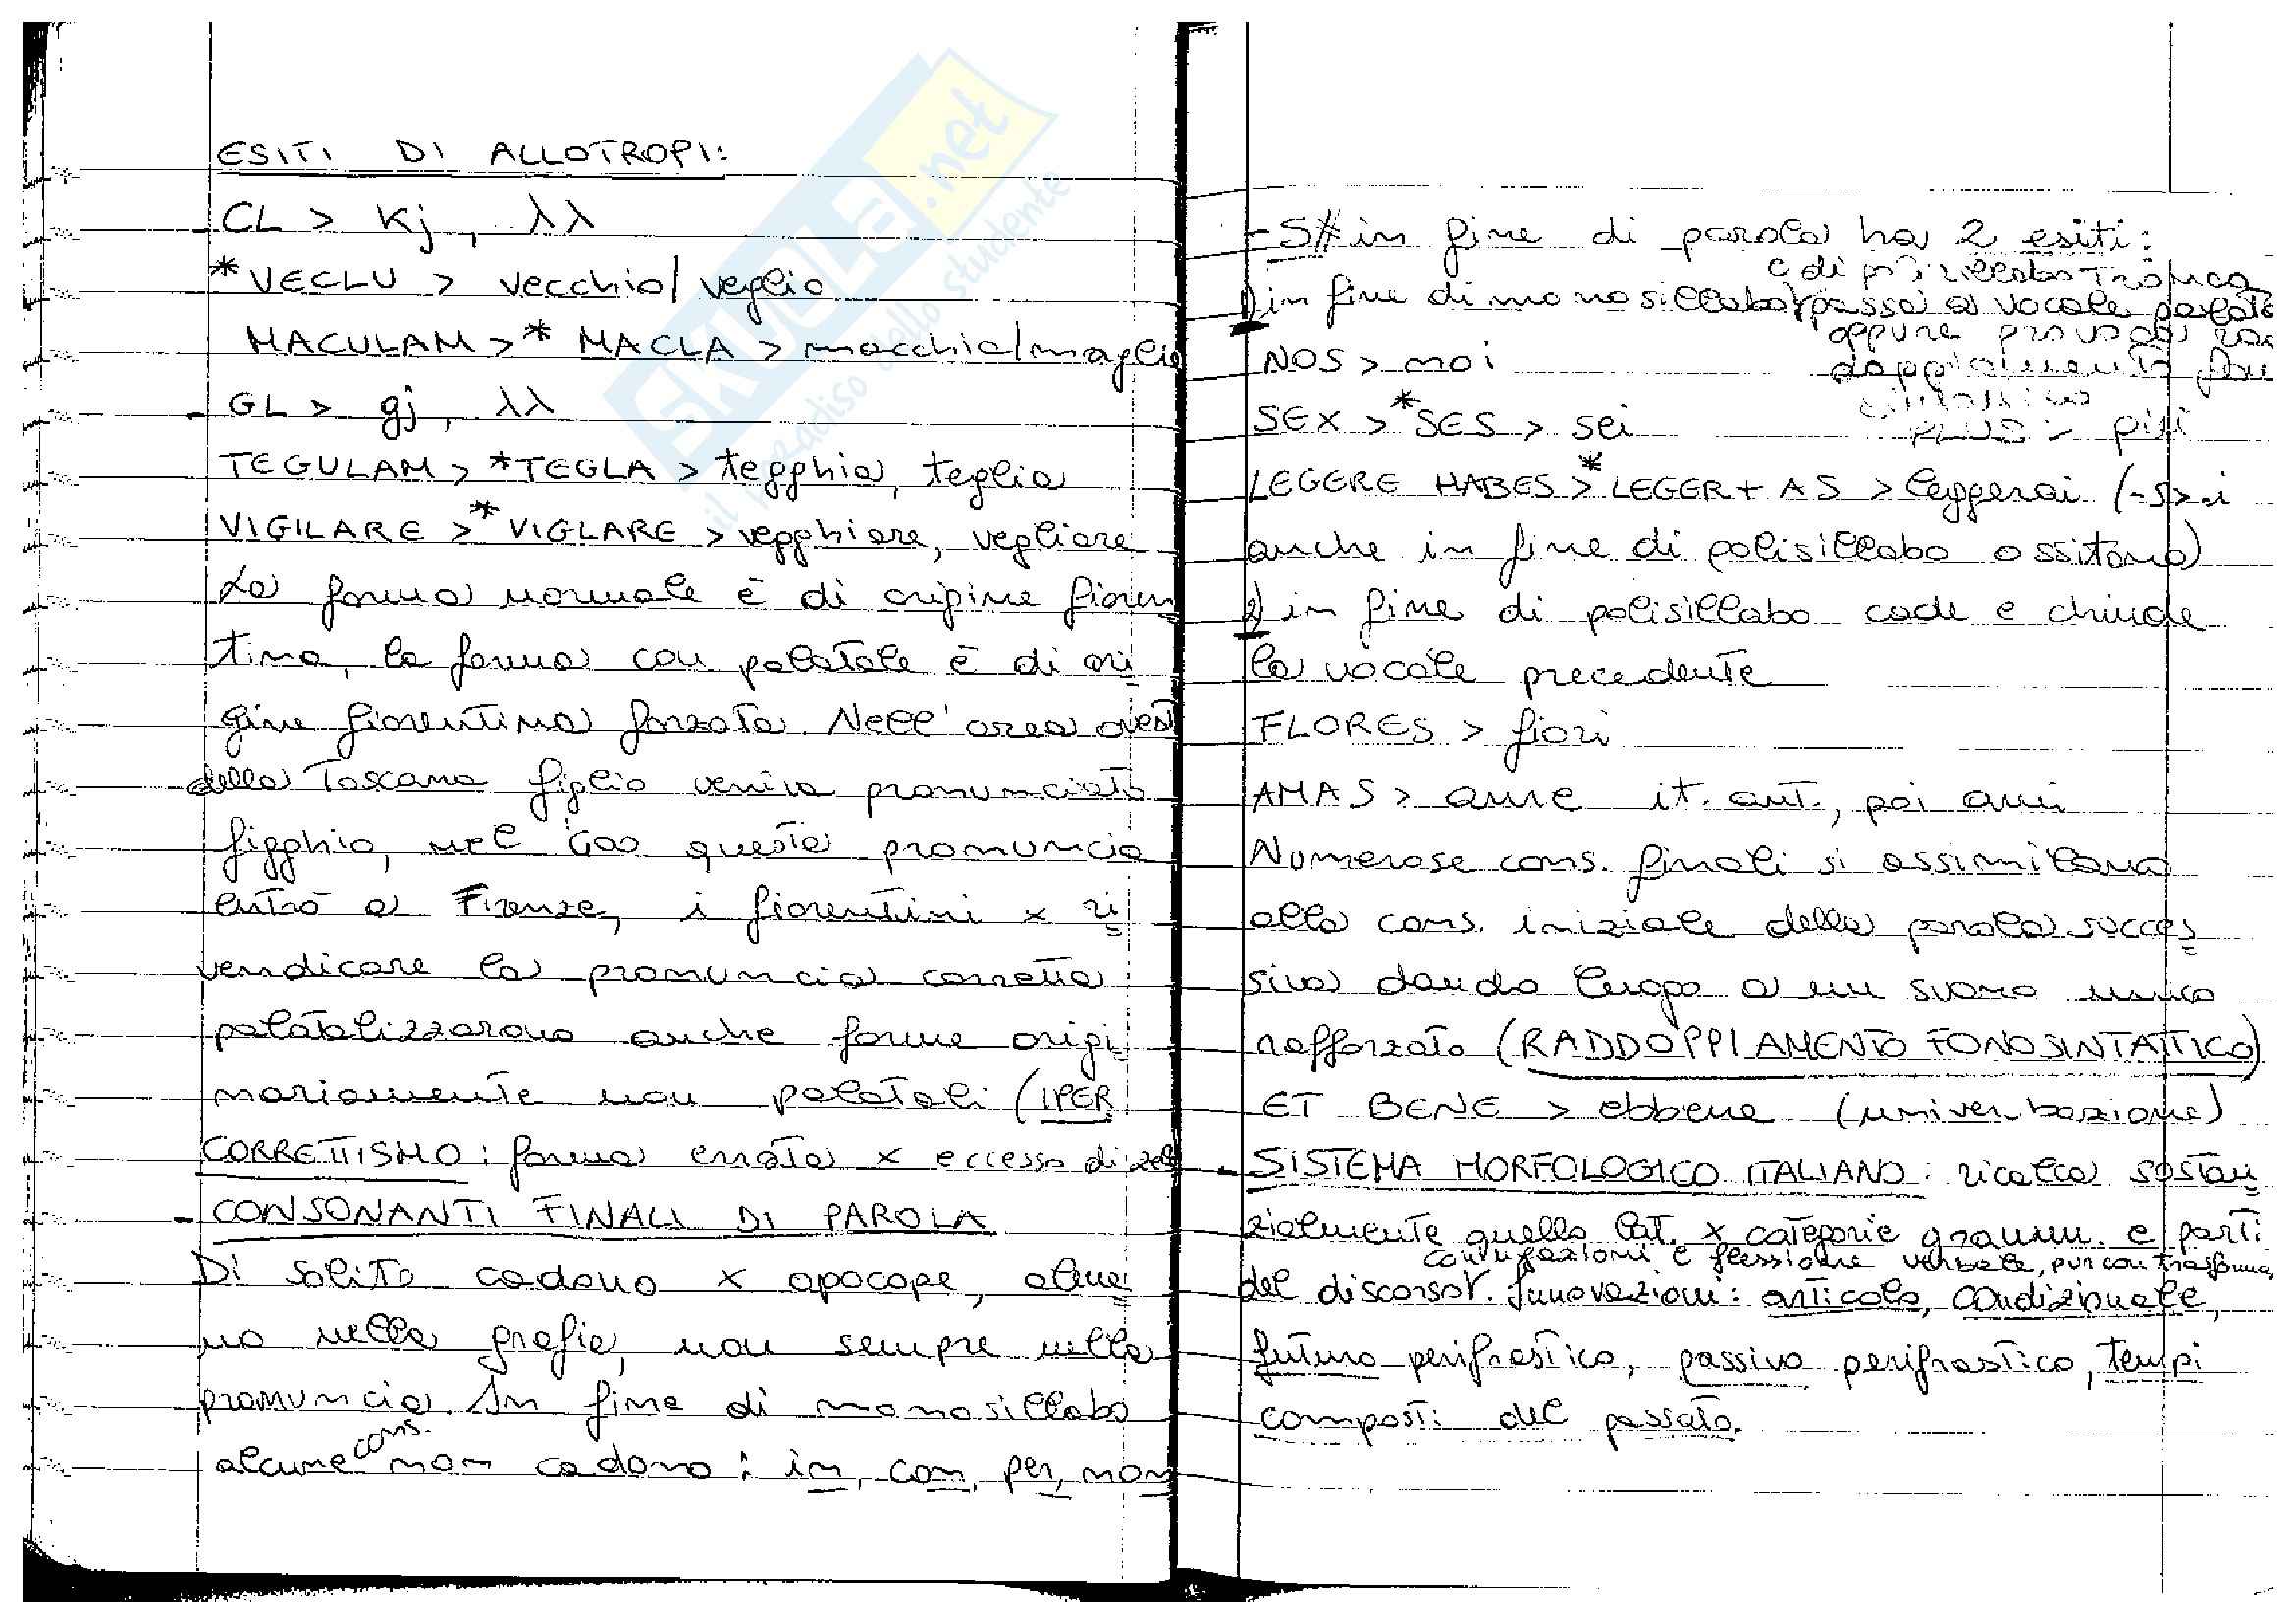 ESITI DI ALLOTROPI:
- CL > Kj, λλ
*VECLU > vecchio/veglio
MACULAM > * MACLA > macchia/maglia
- GL > gj, λλ
TEGULAM > *TEGLA > tegghia, teglia
VIGILARE > * VIGLARE > vegghiare, vegliare
La forma normale è di origine fioren
tina, la forma con palatale è di ori
gine fiorentina forzata. Nell'area ovest
della Toscana figlio veniva pronunciato
figghio, nel '600 questa pronuncia
entrò a Firenze, i fiorentini x ri
vendicare la pronuncia corretta
palatalizzarono anche forme origi
nariamente non palatali (IPER
CORRETTISMO: forma errata x eccesso di zelo
- CONSONANTI FINALI DI PAROLA
Di solito cadono x apocope, alme
no nella grafia, non sempre nella
pronuncia. In fine di monosillabo
alcune cons. non cadono: in, con, per, non
- S# in fine di parola ha 2 esiti:
e di tronca
1) in fine di monosillabo passa a vocale palat
oppure provoca rad
doppiamento fon
NOS > noi
PLUS > più
SEX > *SES > sei
LEGERE HABES > * LEGER + AS > leggerai (-s > i
anche in fine di polisillabo ossitono)
2) in fine di polisillabo cade e chiude
la vocale precedente
FLORES > fiori
AMAS > ame it. ant., poi ami
Numerose cons. finali si assimilano
alla cons. iniziale della parola succes
siva dando luogo a un suono unico
rafforzato (RADDOPPIAMENTO FONOSINTATTICO)
ET BENE > ebbene (univerbazione)
- SISTEMA MORFOLOGICO ITALIANO: ricalca sostan
zialmente quello lat. x categorie gramm. e parti
coniugazioni e flessione verbale, pur con trasforma
del discorso. Innovazioni: articolo, condizionale,
futuro perifrastico, passivo perifrastico, tempi
composti del passato.
SKUOLA.net
il paradiso dello studente